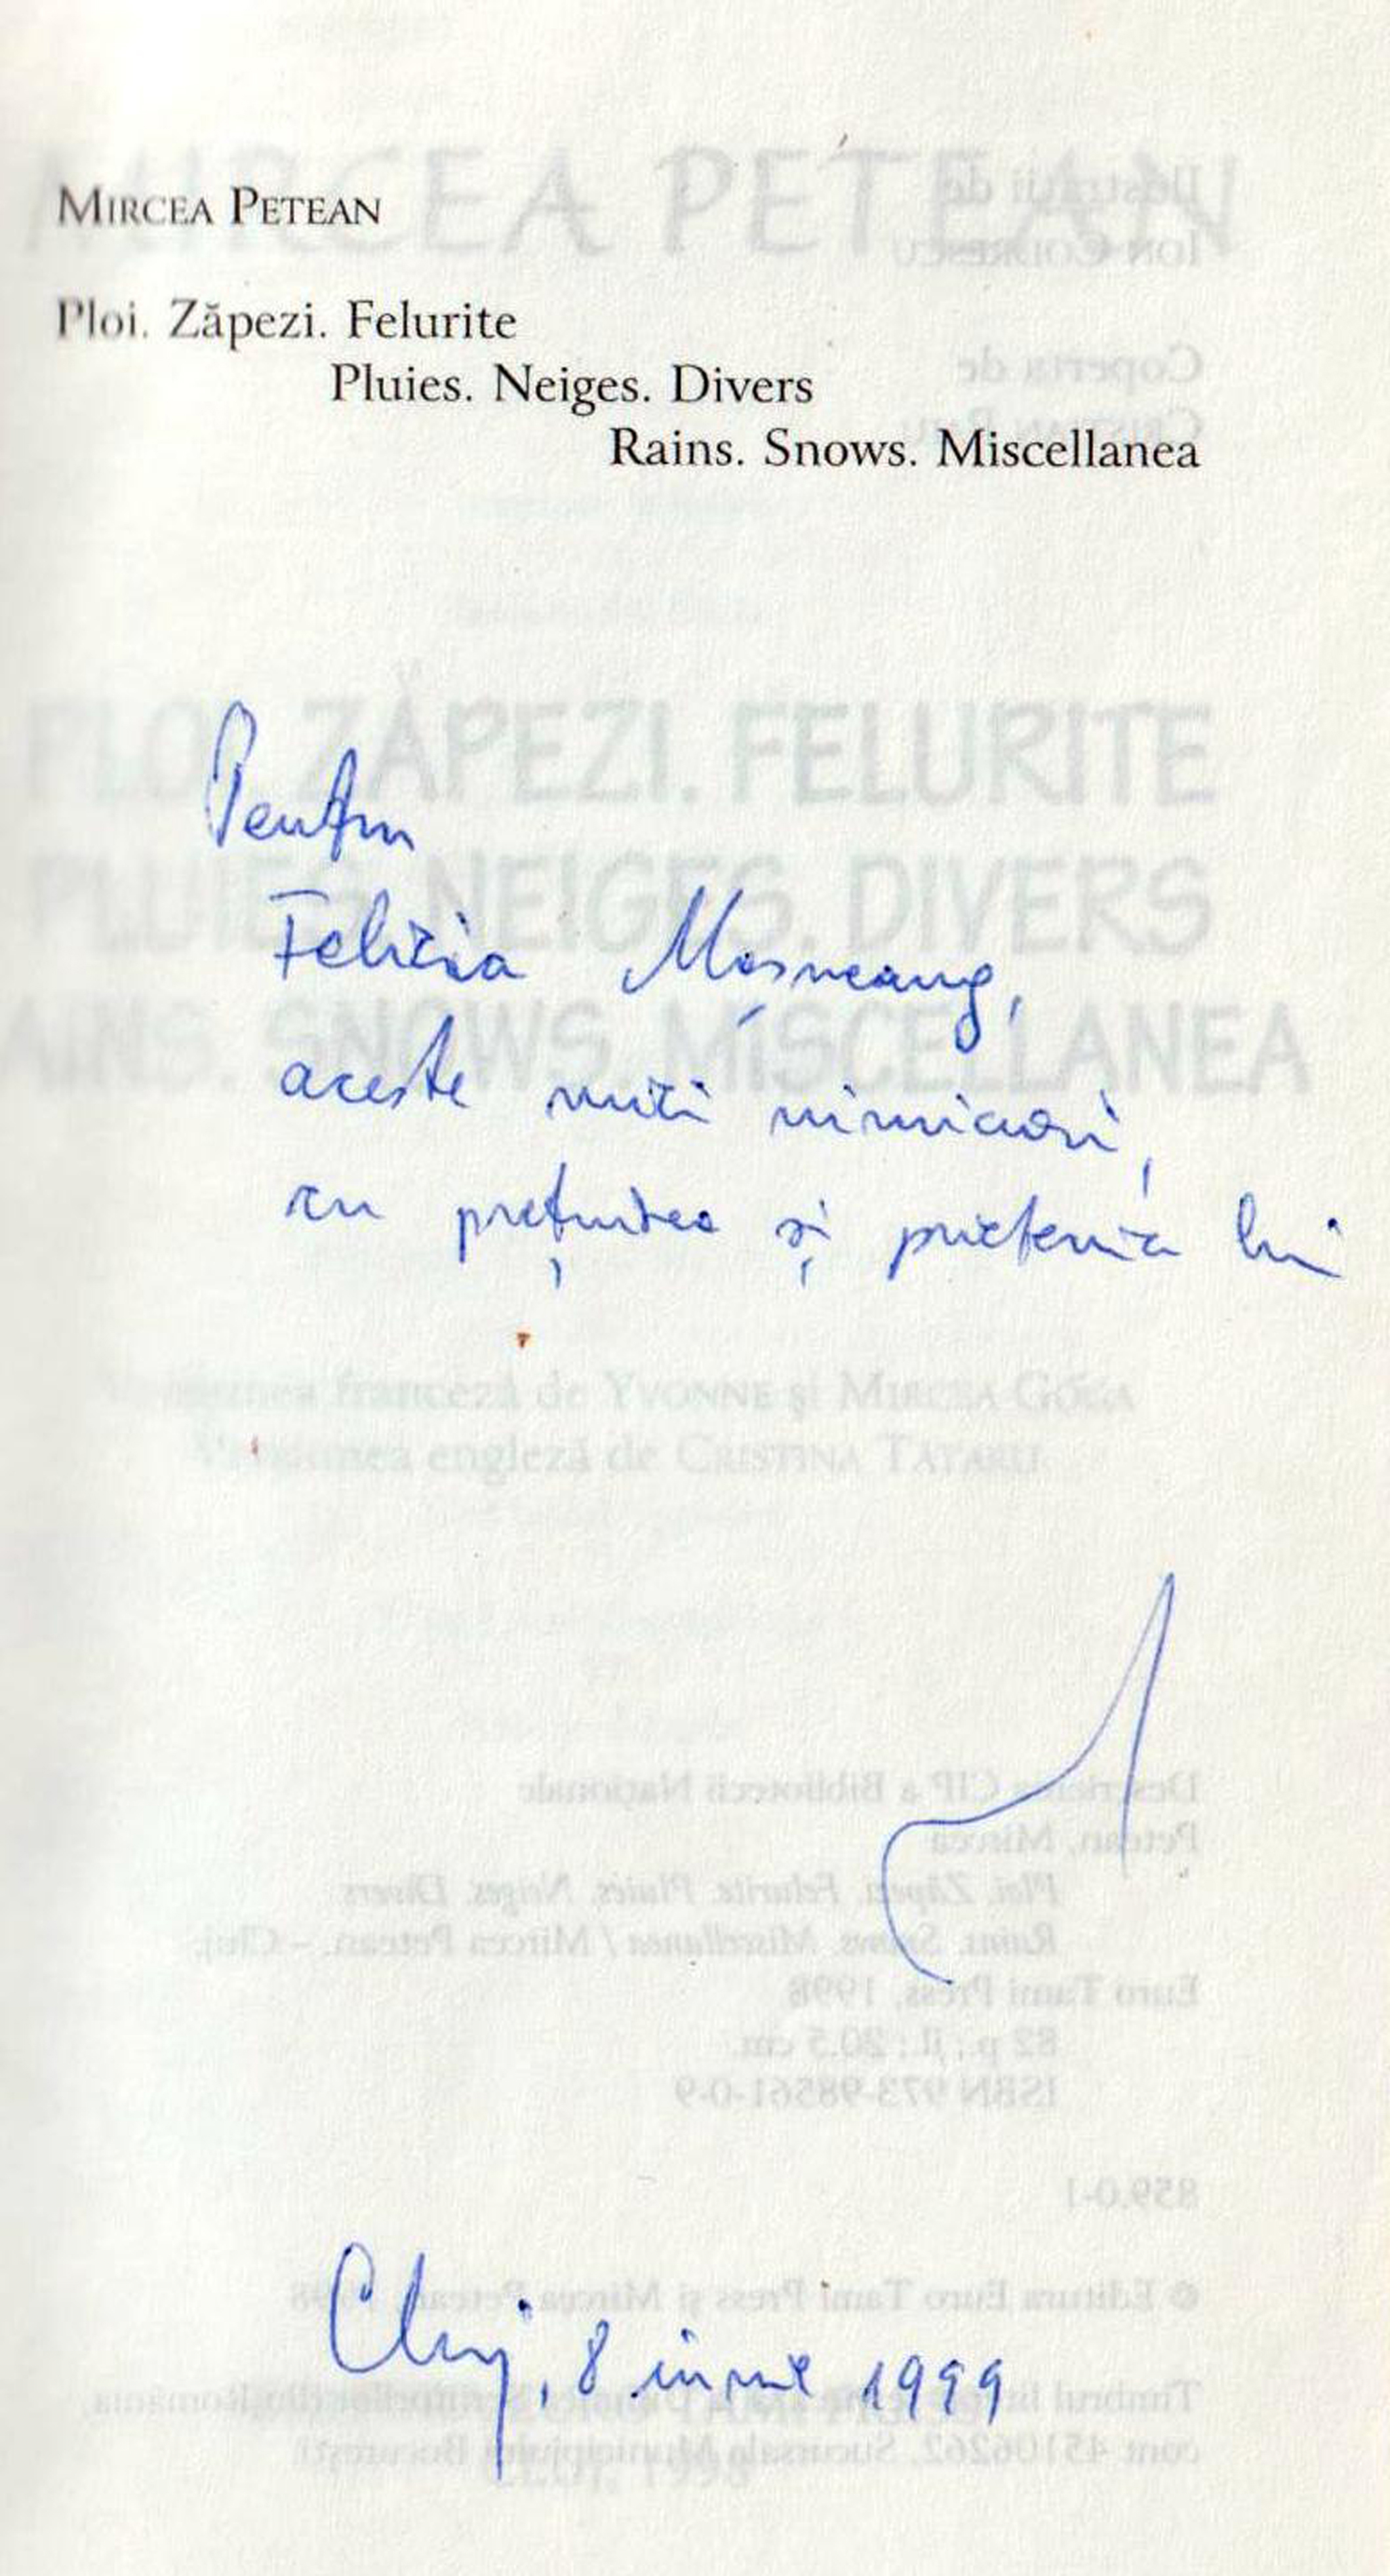 MIRCEA PETEAN
Ploi. Zăpezi. Felurite
Pluies. Neiges. Divers
Rains. Snows. Miscellanea
Pentru
Felicia Moșneang,
aceste mici nimicuri,
cu prețuirea și prietenia lui
Cluj, 8 iunie 1999